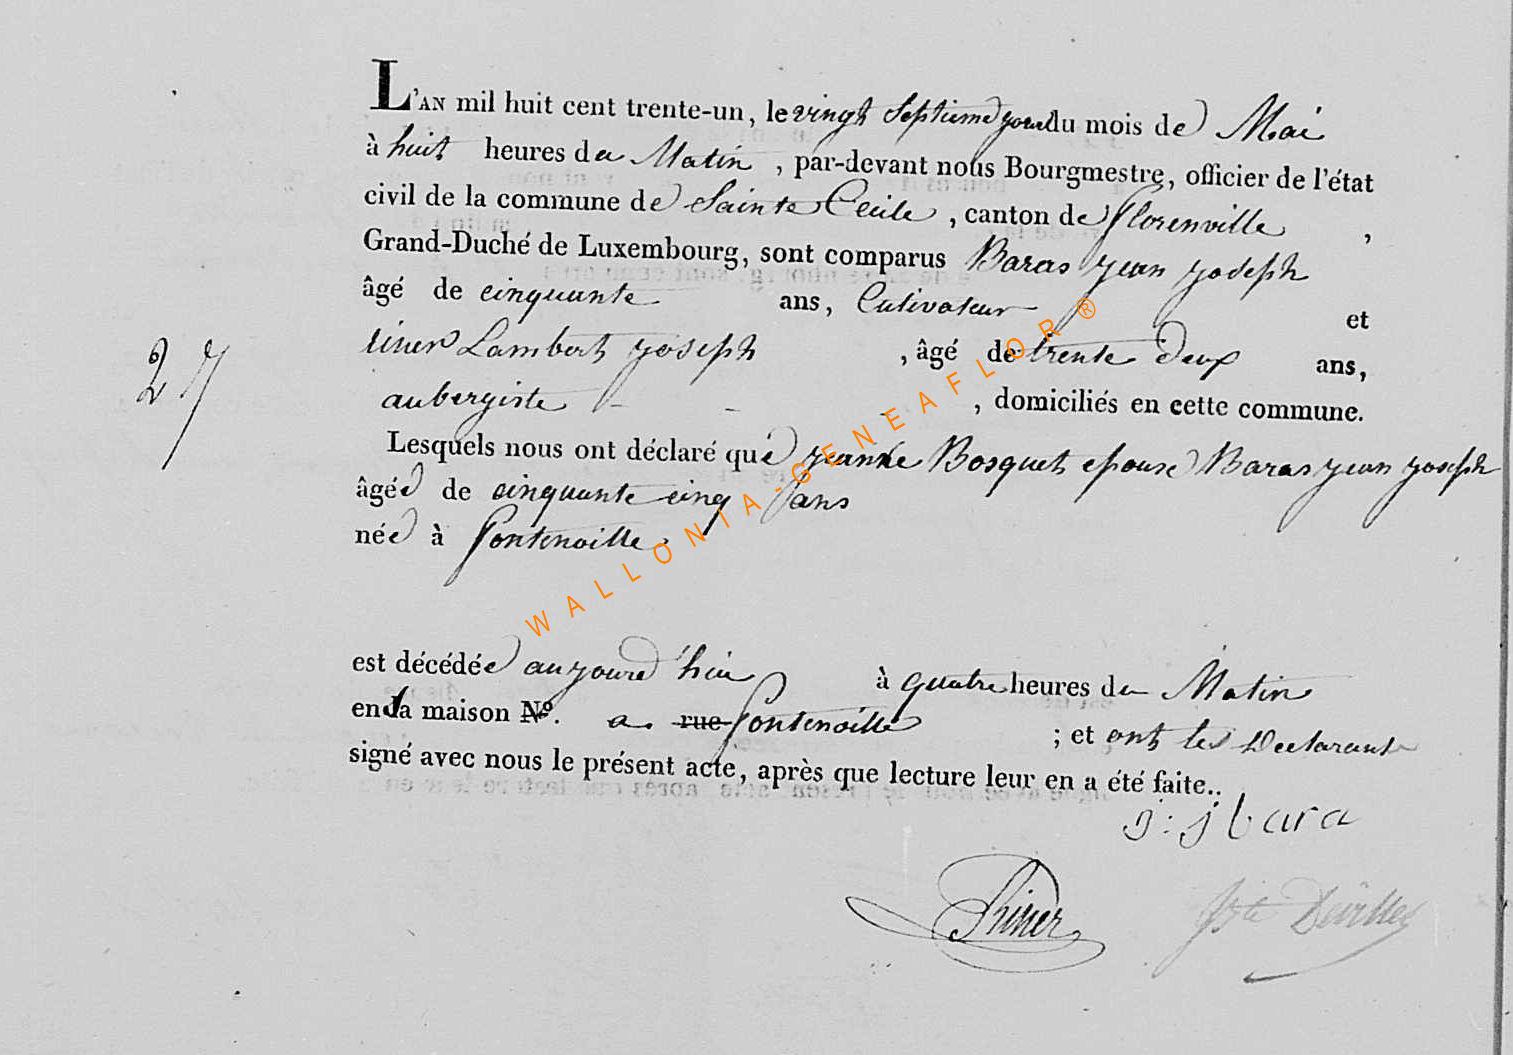 L'AN mil huit cent trente-un, le vingt Septieme jour du mois de Mai
à huit heures du Matin, par-devant nous Bourgmestre, officier de l'état
civil de la commune de Sainte Cecile, canton de florenville,
Grand-Duché de Luxembourg, sont comparus Baras jean joseph
âgé de cinquante ans, Cutivateur et
Lambert joseph, âgé de trente deux ans,
27
aubergiste - - -, domiciliés en cette commune.
Lesquels nous ont déclaré qué jeanne Bosquet epouse Baras jean joseph
âgée de cinquante cinq ans
née à fontenoille
est décédée aujourd'hui à quatre heures du Matin
en la maison N°. a rue fontenoille ; et ont les Declarants
signé avec nous le présent acte, après que lecture leur en a été faite..
j: j bara
WALLONIA-GENEAFLOR®